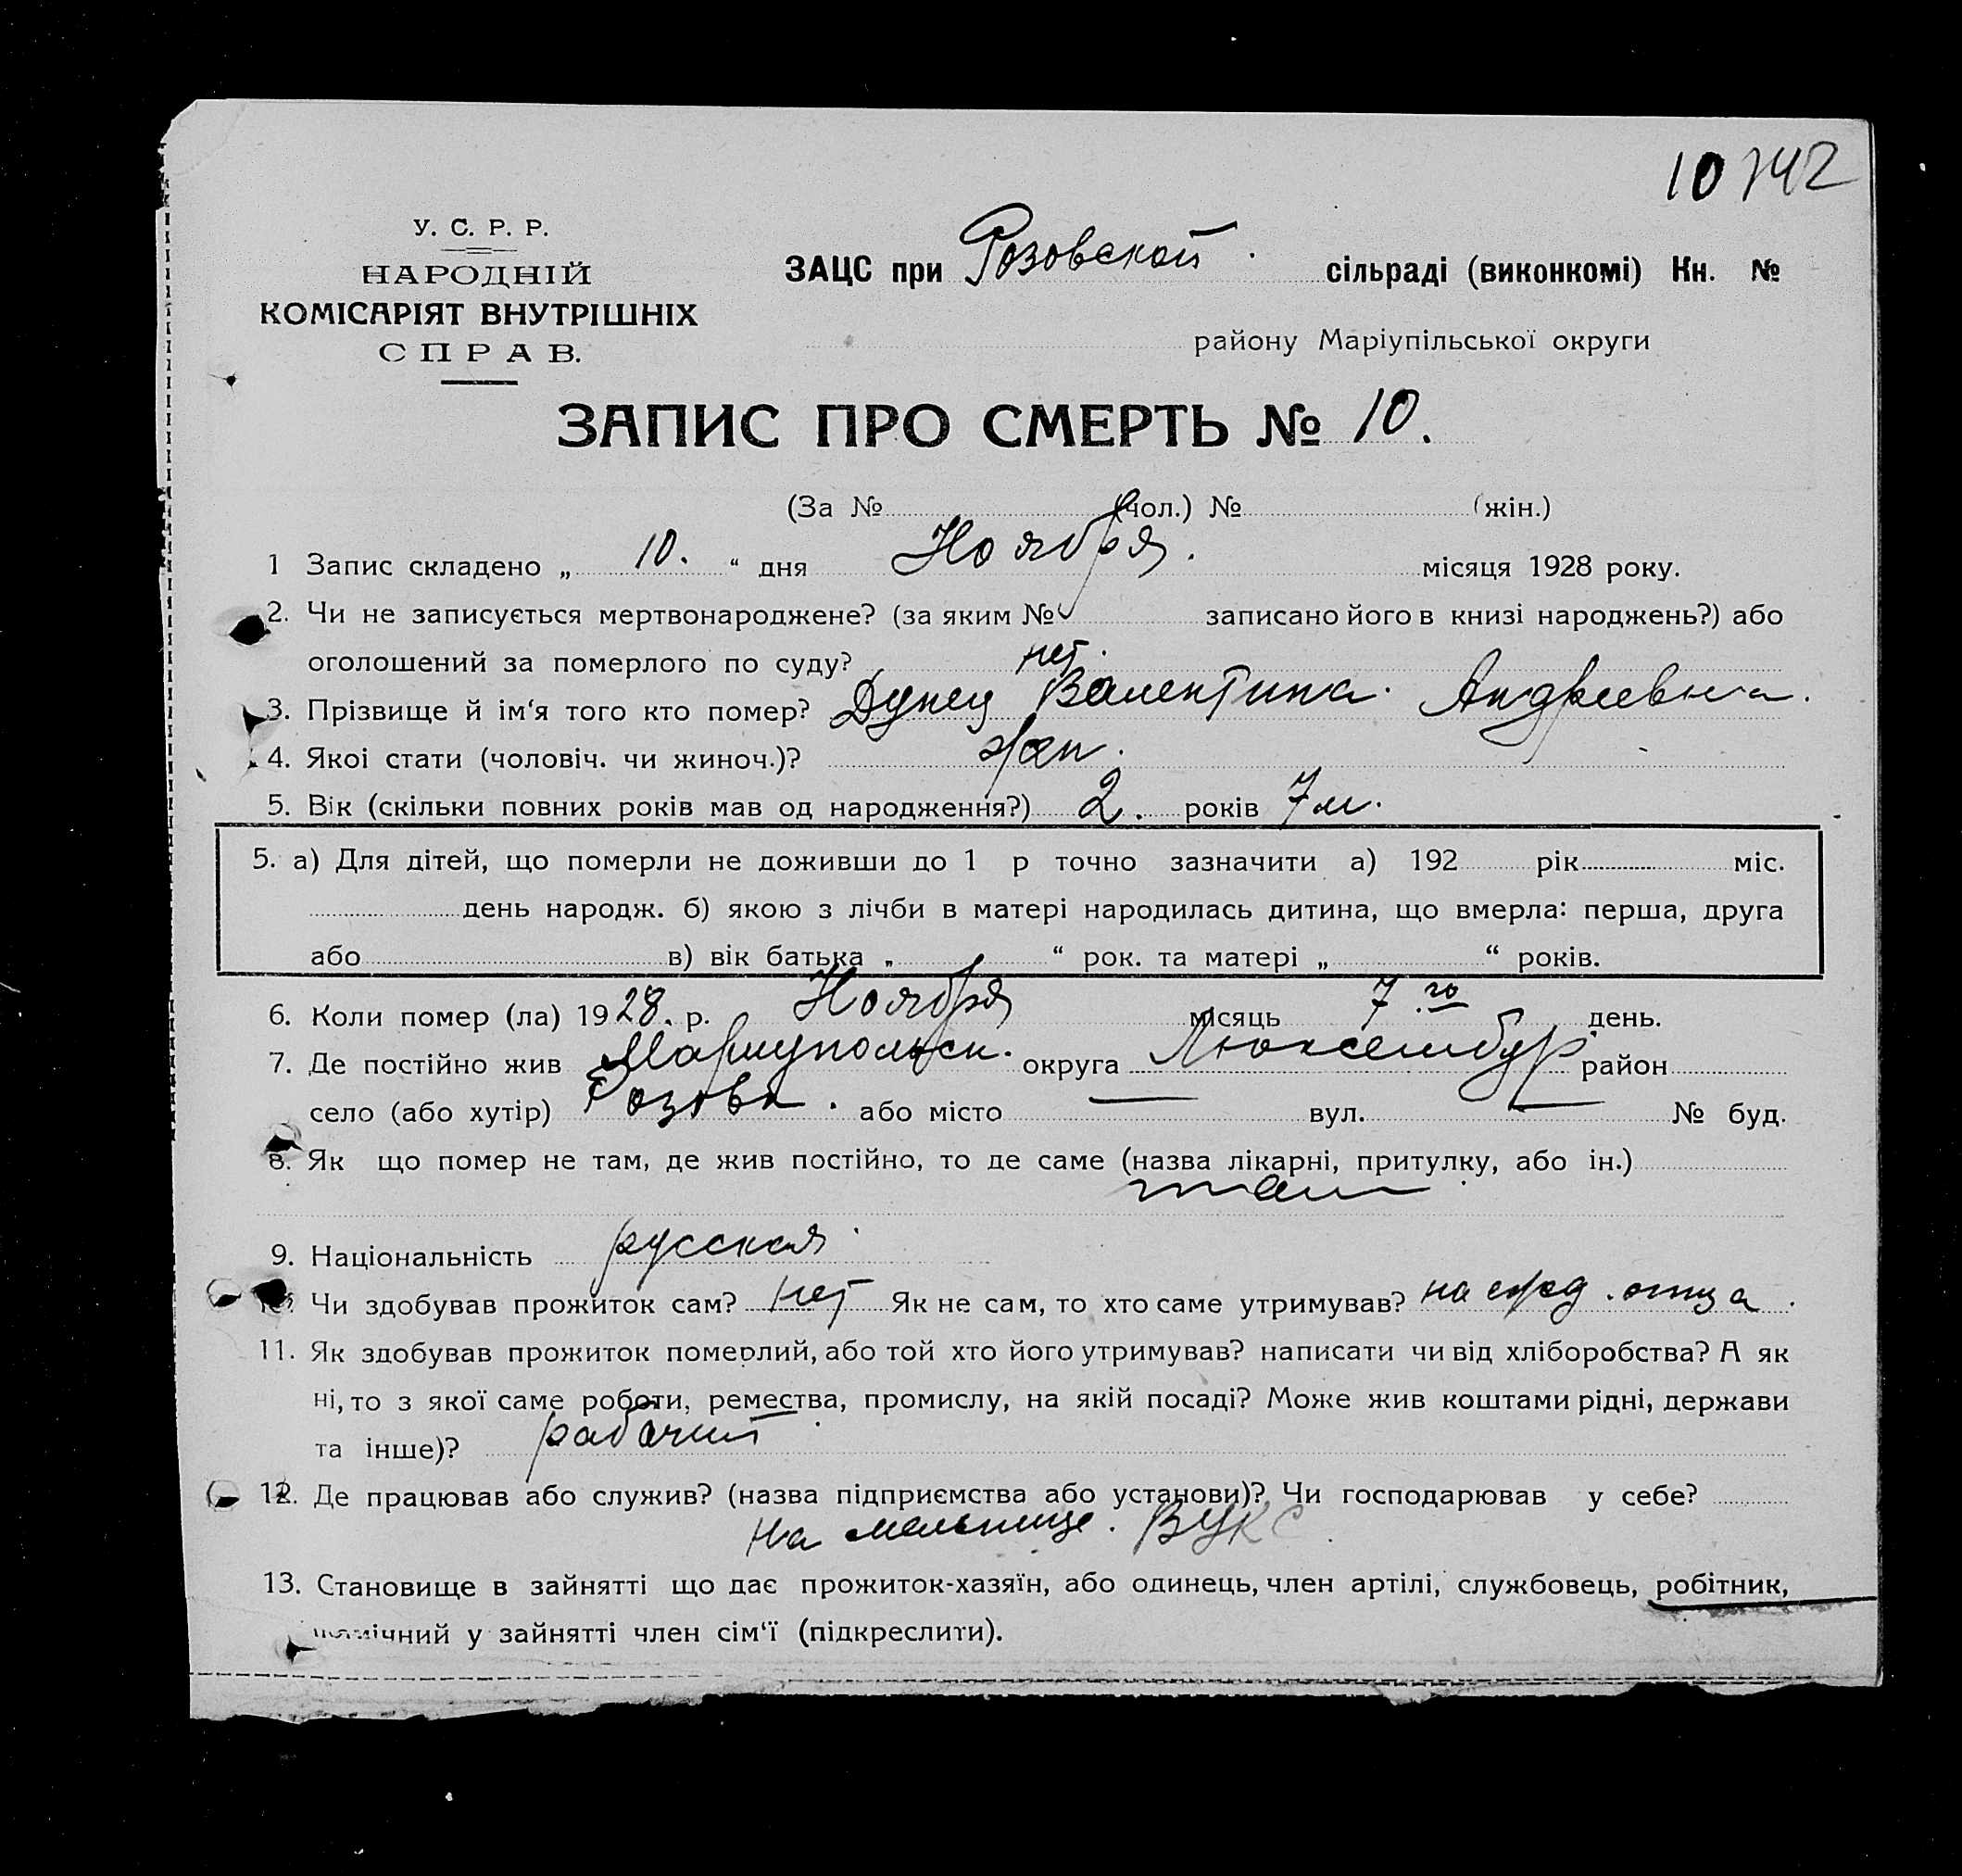 10 742
У. С. Р. Р.
НАРОДНІЙ
КОМІСАРІЯТ ВНУТРІШНІХ
СПРАВ.
ЗАЦС при Розовской сільраді (виконкомі) Кн. №
району Маріупільської округи
ЗАПИС ПРО СМЕРТЬ № 10.
(За № (чол.) № (жін.)
1 Запис складено „ 10. “ дня Ноября. місяця 1928 року.
2. Чи не записується мертвонароджене? (за яким № записано його в книзі народжень?) або
оголошений за померлого по суду? нет.
3. Прізвище й ім‘я того кто помер? Дунец Валентина Андреевна.
4. Якоі стати (чоловіч. чи жиноч.)? жен.
5. Вік (скільки повних років мав од народження?) 2. років 7 м.
5. а) Для дітей, що померли не доживши до 1 р точно зазначити а) 192 рік міс.
день народж. б) якою з лічби в матері народилась дитина, що вмерла: перша, друга
або в) вік батька „ “ рок. та матері „ “ років.
6. Коли помер (ла) 1928. р. Ноября місяць 7.го день.
7. Де постійно жив Мариупольск. округа Люксембур. район
село (або хутір) Розовка. або місто — вул. — № буд.
8. Як що помер не там, де жив постійно, то де саме (назва лікарні, притулку, або ін.)
там
9. Національність русская
Чи здобував прожиток сам? нет Як не сам, то хто саме утримував? на сред. отца.
11. Як здобував прожиток померлий, або той хто його утримував? написати чи від хліборобства? А як
ні, то з якої саме роботи, ремества, промислу, на якій посаді? Може жив коштами рідні, держави
та інше)? рабочий
12. Де працював або служив? (назва підприємства або установи)? Чи господарював у себе?
На мельнице. ВУКС
13. Становище в зайнятті що дає прожиток-хазяїн, або одинець, член артілі, службовець, робітник,
у зайнятті член сім‘ї (підкреслити).